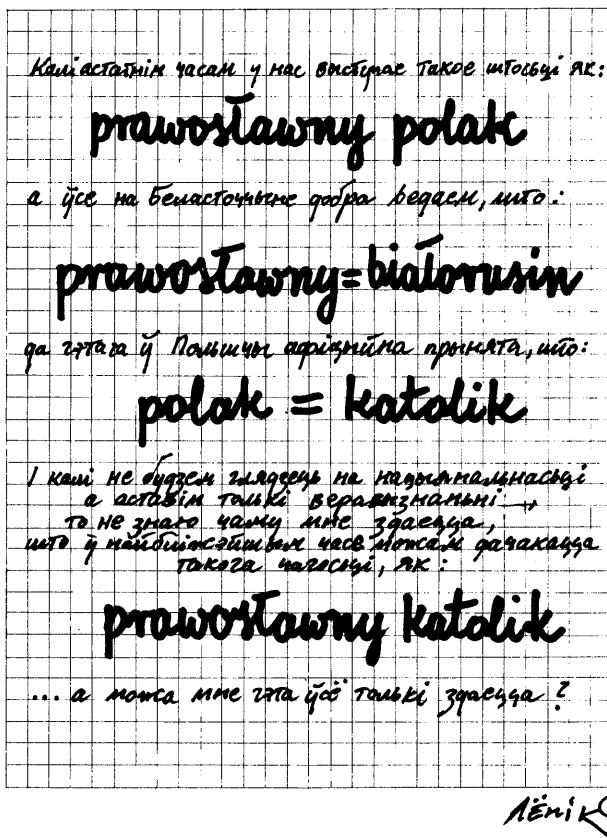 Калі астатнім часам у нас выступае такое штосьці як:
prawosławny polak
а ўсе на Беласточчыне добра ведаем, што:
prawosławny = białorusin
да гэтага ў Польшчы афіцыйна прынята, што:
polak = katolik
І калі не будзем глядзець на нацыянальнасьці
а аставім толькі веравызнаньні →
то не знаю чаму мне здаецца,
што ў найбліжэйшым часе можам дачакацца
такога чагосьці, як:
prawosławny katolik
... а можа мне гэта ўсё толькі здаецца ?
Лёнік